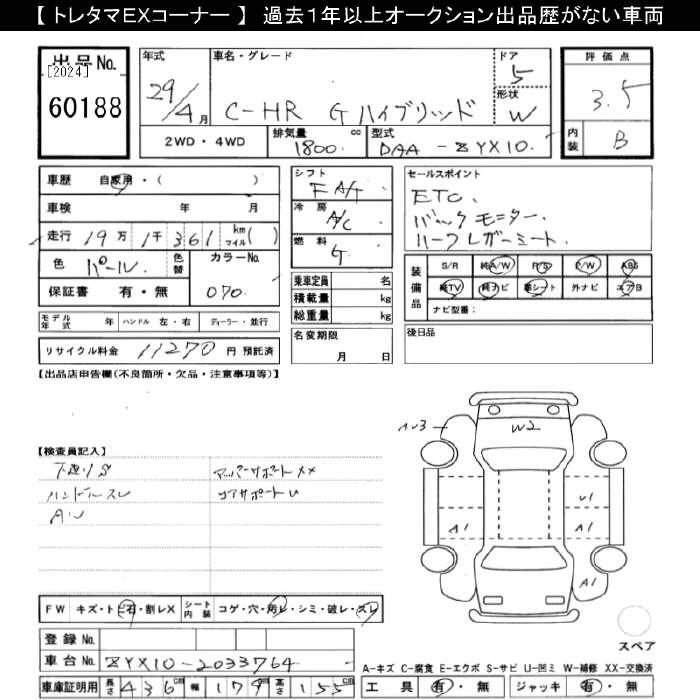 【 トレタマEXコーナー 】 過去1年以上オークション出品歴がない車両
出品No.
[2024]
60188
年式
29/4月
車名・グレード
C-HR G ハイブリッド
ドア
5
形状
W
評価点
3.5
内装
B
2WD・4WD
排気量
1800 cc
型式
DAA-ZYX10
車歴 自家用・( )
車検 年 月
走行 19万1千361 km マイル( )
色 パール
色替
カラーNo.
070
保証書 有・無
モデル年式 年 ハンドル 左・右 ディーラー・並行
リサイクル料金 11270 円 預託済
シフト
FAT
冷房
A/C
燃料
G
乗車定員 名
積載量 kg
総重量 kg
名変期限
月 日
セールスポイント
ETC.
バックモニター.
ハーフレザーシート.
装備品
S/R 純A/W P/S P/W ABS
純TV 純ナビ 革シート 外ナビ エアB
ナビ型番:
後日品
【出品店申告欄(不良箇所・欠品・注意事項等)】
【検査員記入】
下廻りS
ハンドルスレ
AU
アッパーサポートXX
コアサポートU
AU3
W2
U1
A1
A1
A1
スペア
FW キズ・トビ石・割レX
シート内装 コゲ・穴・汚レ・シミ・破レ・スレ
登録No.
車台No. ZYX10-2033764
車庫証明用 長さ 436 cm 幅 179 cm 高さ 155 cm
A-キズ C-腐食 E-エクボ S-サビ U-凹ミ W-補修 XX-交換済
工具 有・無 ジャッキ 有・無